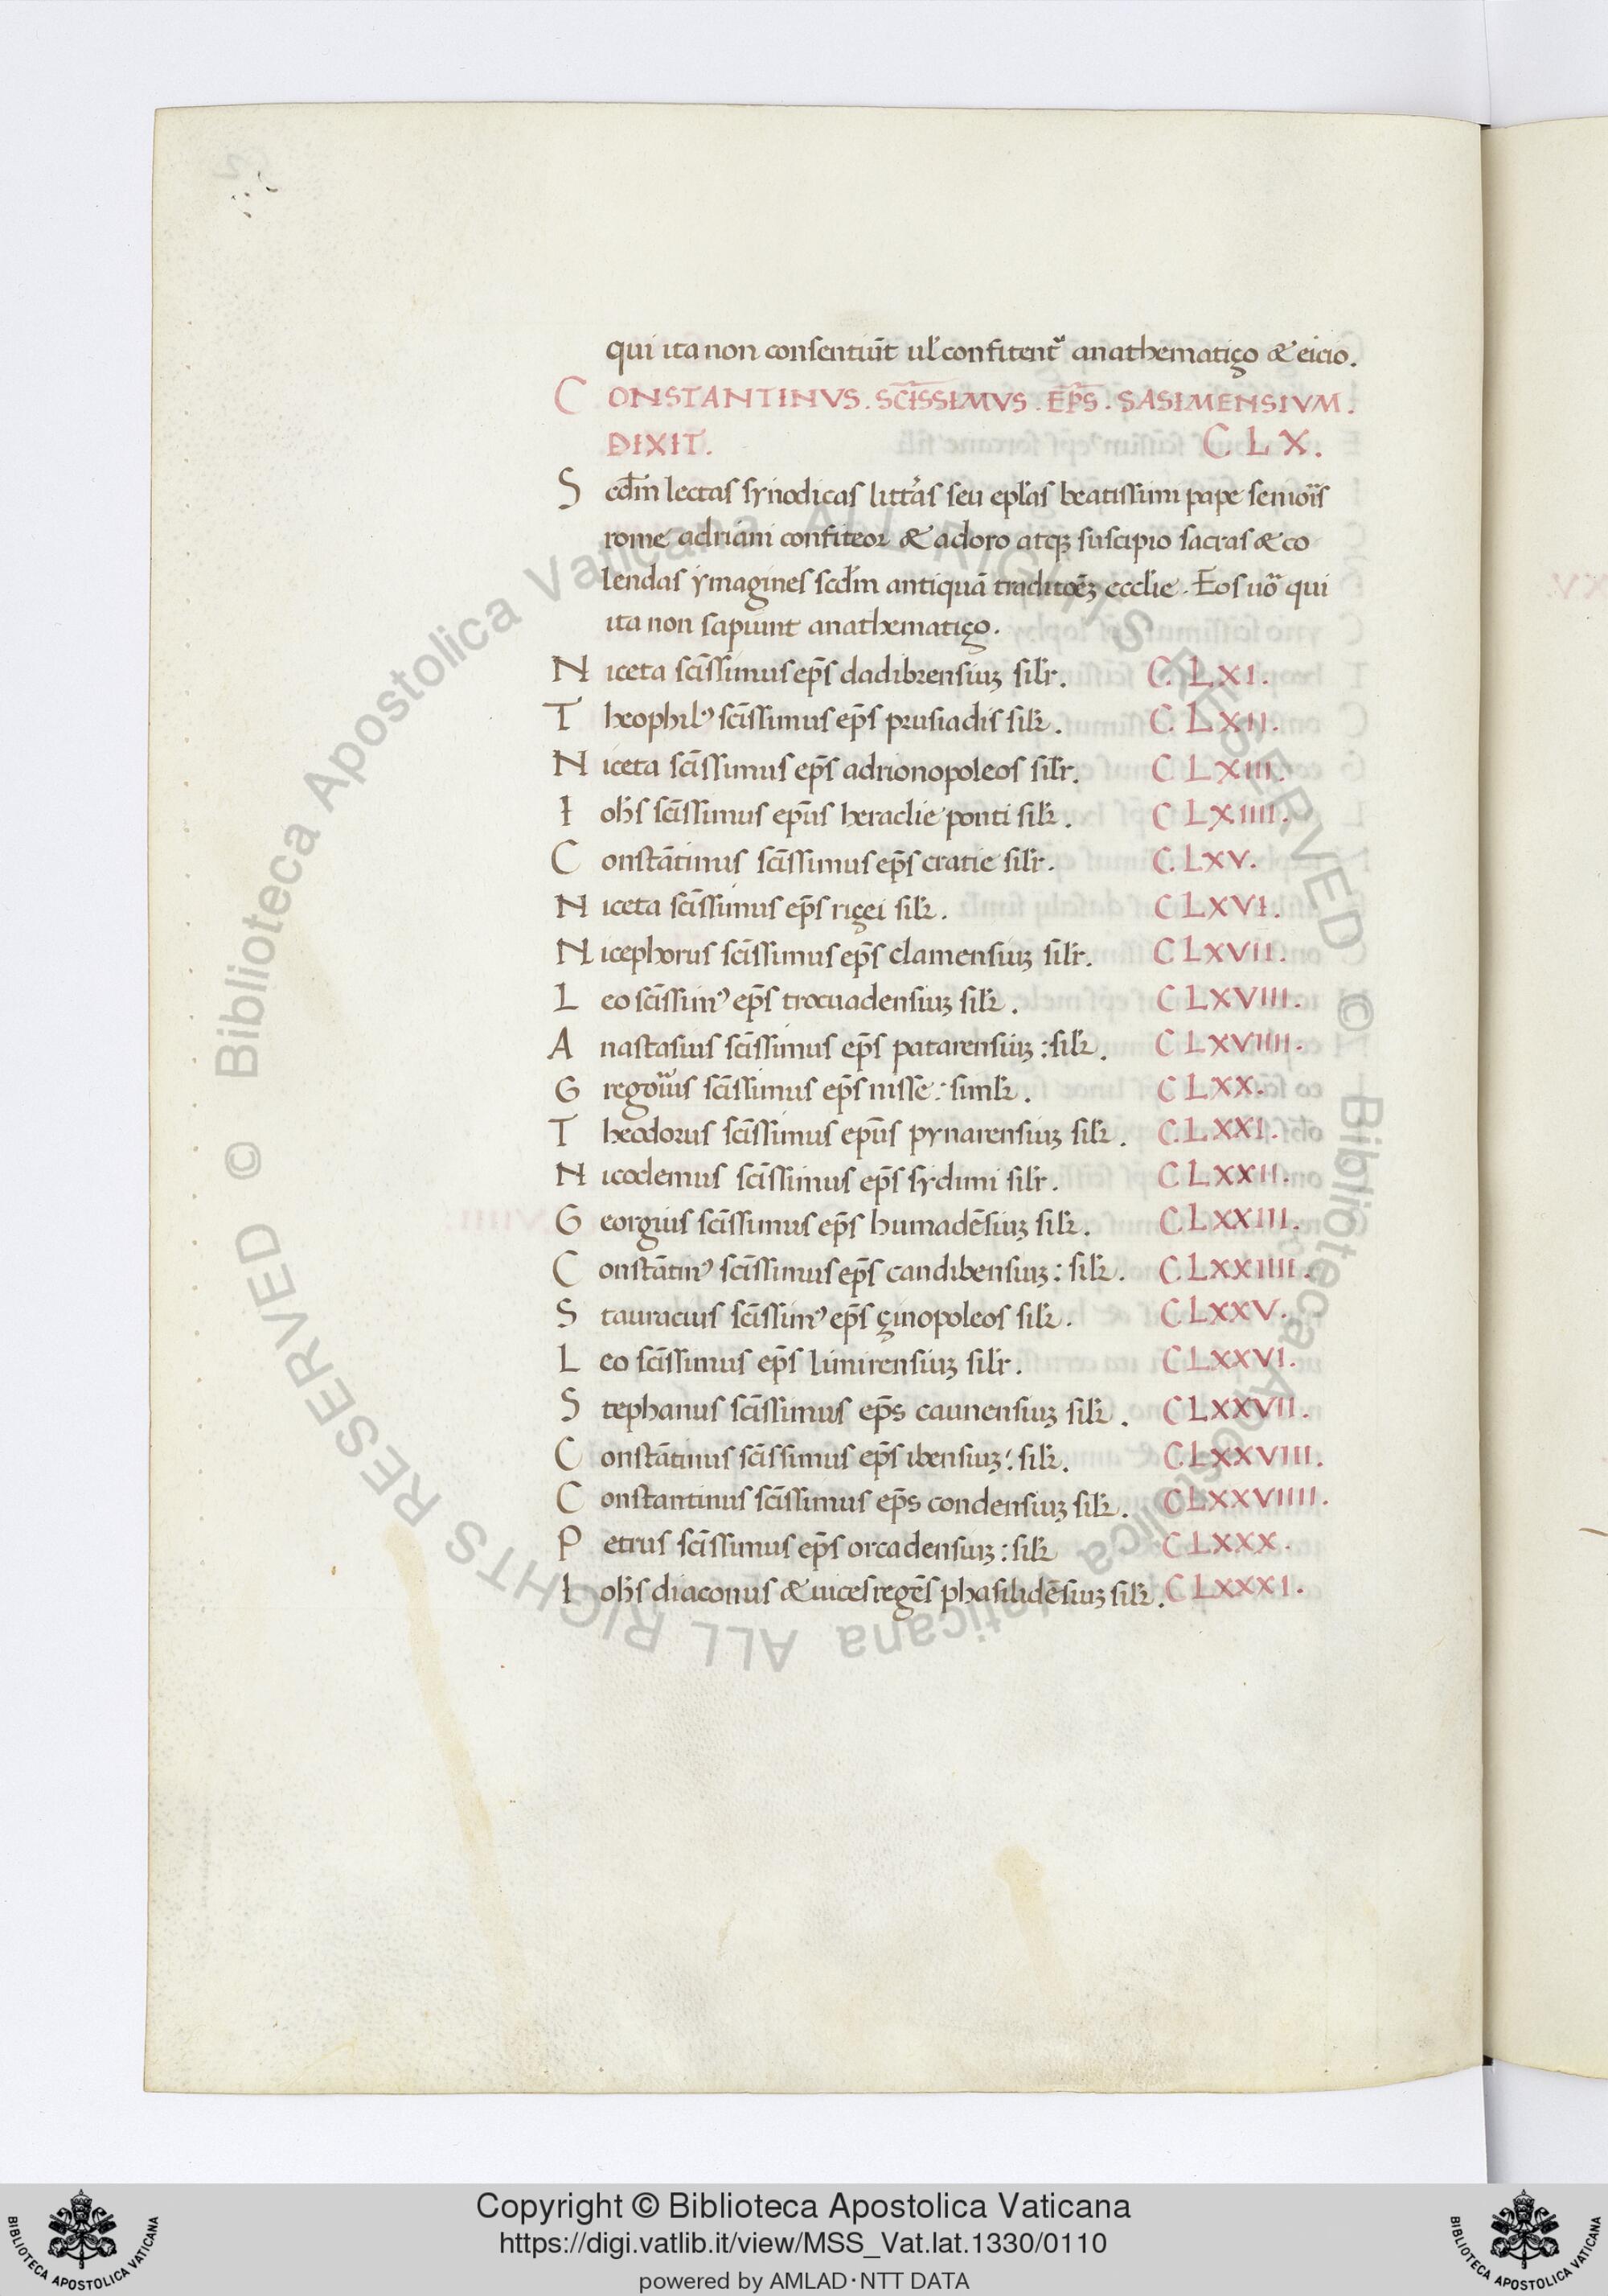 qui ita non consentiūt ul' confitent᷑ anathematiço & eicio.
CONSTANTINVS. SCISSIMVS. EP̄S. SASIMENSIVM.
DIXIT. CLX.
Scd̄m lectas synodicas litt̄as seu epl̄as beatissimi pape senioīs
rome adriani confiteor & adoro atqꝫ suscipio sacras & co
lendas ymagines scd̄m antiquā traditōeꝫ ecclie. Eos uō qui
ita non sapiunt anathematiço.
Niceta scīssimus ep̄s dadibrensiuꝫ silr. C. LXI.
Theophilꝰ scīssimus ep̄s prusiadis silr. C. LXII.
Niceta scīssimus ep̄s adrionopoleos silr. C LXIII.
Iohs scīssimus ep̄us heraclie ponti silr. C LXIIII.
Constātinus scīssimus ep̄s cratie silr. C. LXV.
Niceta scīssimus ep̄s riçei silr. C LXVI.
Nicephorus scīssimus ep̄s clamensiuꝫ silr. C LXVII.
Leo scīssimꝰ ep̄s trocuadensiuꝫ silr. C LXVIII.
Anastasius scīssimus ep̄s patarensiuꝫ : silr. C LXVIIII.
Gregorius scīssimus ep̄s nisse : simlr. C LXX.
Theodorus scīssimus ep̄us pynarensiuꝫ silr. C. LXXI.
Nicodemus scīssimus ep̄s sydimi silr. C LXXII.
Georgius scīssimus ep̄s humadēsiuꝫ silr. C. LXXIII.
Constātinꝰ scīssimus ep̄s candibensiuꝫ : silr. C. LXXIIII.
Stauracius scīssimꝰ ep̄s çinopoleos silr. C LXXV.
Leo scīssimus ep̄s limirensiuꝫ silr. C LXXVI.
Stephanus scīssimus ep̄s caunensiuꝫ silr. C LXXVII.
Constātinus scīssimus ep̄s ibensiuꝫ : silr. C. LXXVIII.
Constantinus scīssimus ep̄s condensiuꝫ silr. C LXXVIIII.
Petrus scīssimus ep̄s orcadensiuꝫ : silr C LXXX.
Iohs diaconus & uices regēs phasilidēsiuꝫ silr. C LXXXI.
© Biblioteca Apostolica Vaticana ALL RIGHTS RESERVED © Biblioteca Apostolica Vaticana ALL RIGHTS RESERVED
Copyright © Biblioteca Apostolica Vaticana
https://digi.vatlib.it/view/MSS_Vat.lat.1330/0110
powered by AMLAD·NTT DATA
BIBLIOTECA APOSTOLICA VATICANA
BIBLIOTECA APOSTOLICA VATICANA